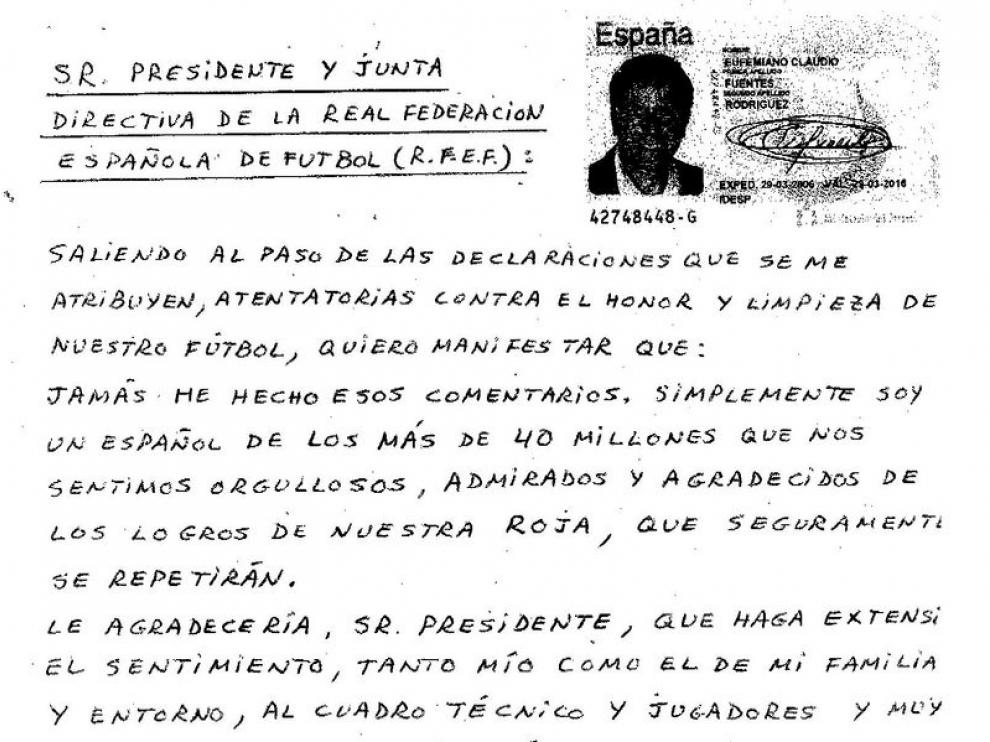 SR. PRESIDENTE Y JUNTA
DIRECTIVA DE LA REAL FEDERACION
ESPAÑOLA DE FUTBOL (R.F.E.F.) :
España
NOMBRE
EUFEMIANO CLAUDIO
PRIMER APELLIDO
FUENTES
SEGUNDO APELLIDO
RODRIGUEZ
EXPED. 29-03-2006 VAL. 29-03-2016
IDESP
42748448-G
SALIENDO AL PASO DE LAS DECLARACIONES QUE SE ME
ATRIBUYEN, ATENTATORIAS CONTRA EL HONOR Y LIMPIEZA DE
NUESTRO FÚTBOL, QUIERO MANIFESTAR QUE:
JAMÁS HE HECHO ESOS COMENTARIOS. SIMPLEMENTE SOY
UN ESPAÑOL DE LOS MÁS DE 40 MILLONES QUE NOS
SENTIMOS ORGULLOSOS, ADMIRADOS Y AGRADECIDOS DE
LOS LOGROS DE NUESTRA ROJA, QUE SEGURAMENTE
SE REPETIRÁN.
LE AGRADECERÍA, SR. PRESIDENTE, QUE HAGA EXTENSI
EL SENTIMIENTO, TANTO MÍO COMO EL DE MI FAMILIA
Y ENTORNO, AL CUADRO TÉCNICO Y JUGADORES Y MUY